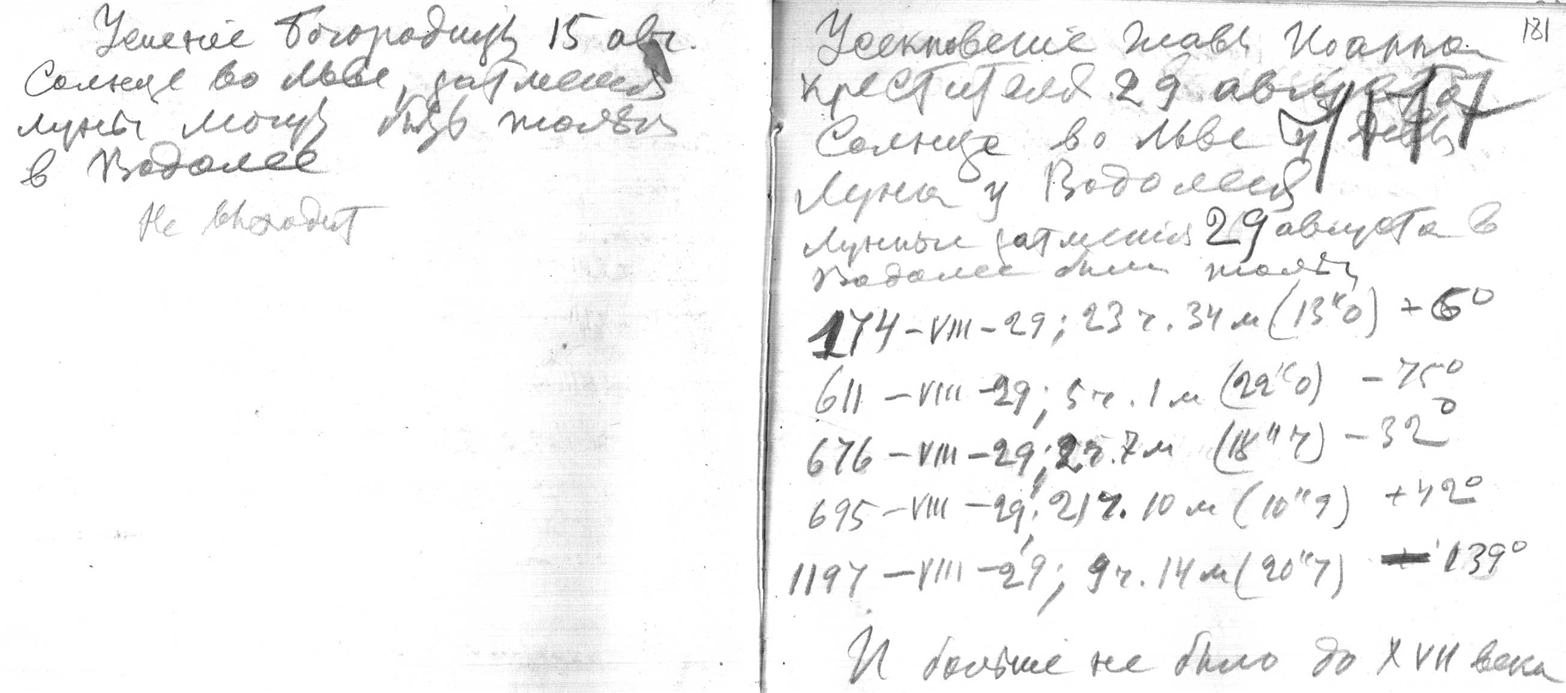 Успение Богородицы 15 авг.
Солнце во Льве, затмения
луны могут быть только
в Водолее
Не выходит
181
Усекновение главы Иоанна
крестителя 29 августа
Солнце во Льве у Девы
Луна у Водолея
Лунные затмения 29 августа в
Водолее были только
174 – VIII – 29; 23 ч. 34 м (13"0) + 6°
611 – VIII – 29; 5 ч. 1 м (22"0) – 75°
676 – VIII – 29; 2 ч. 7 м (18"7) – 32°
695 – VIII – 29; 21 ч. 10 м (10"9) + 42°
1197 – VIII – 29; 9 ч. 14 м (20"7) – 139°
И больше не было до XVII века